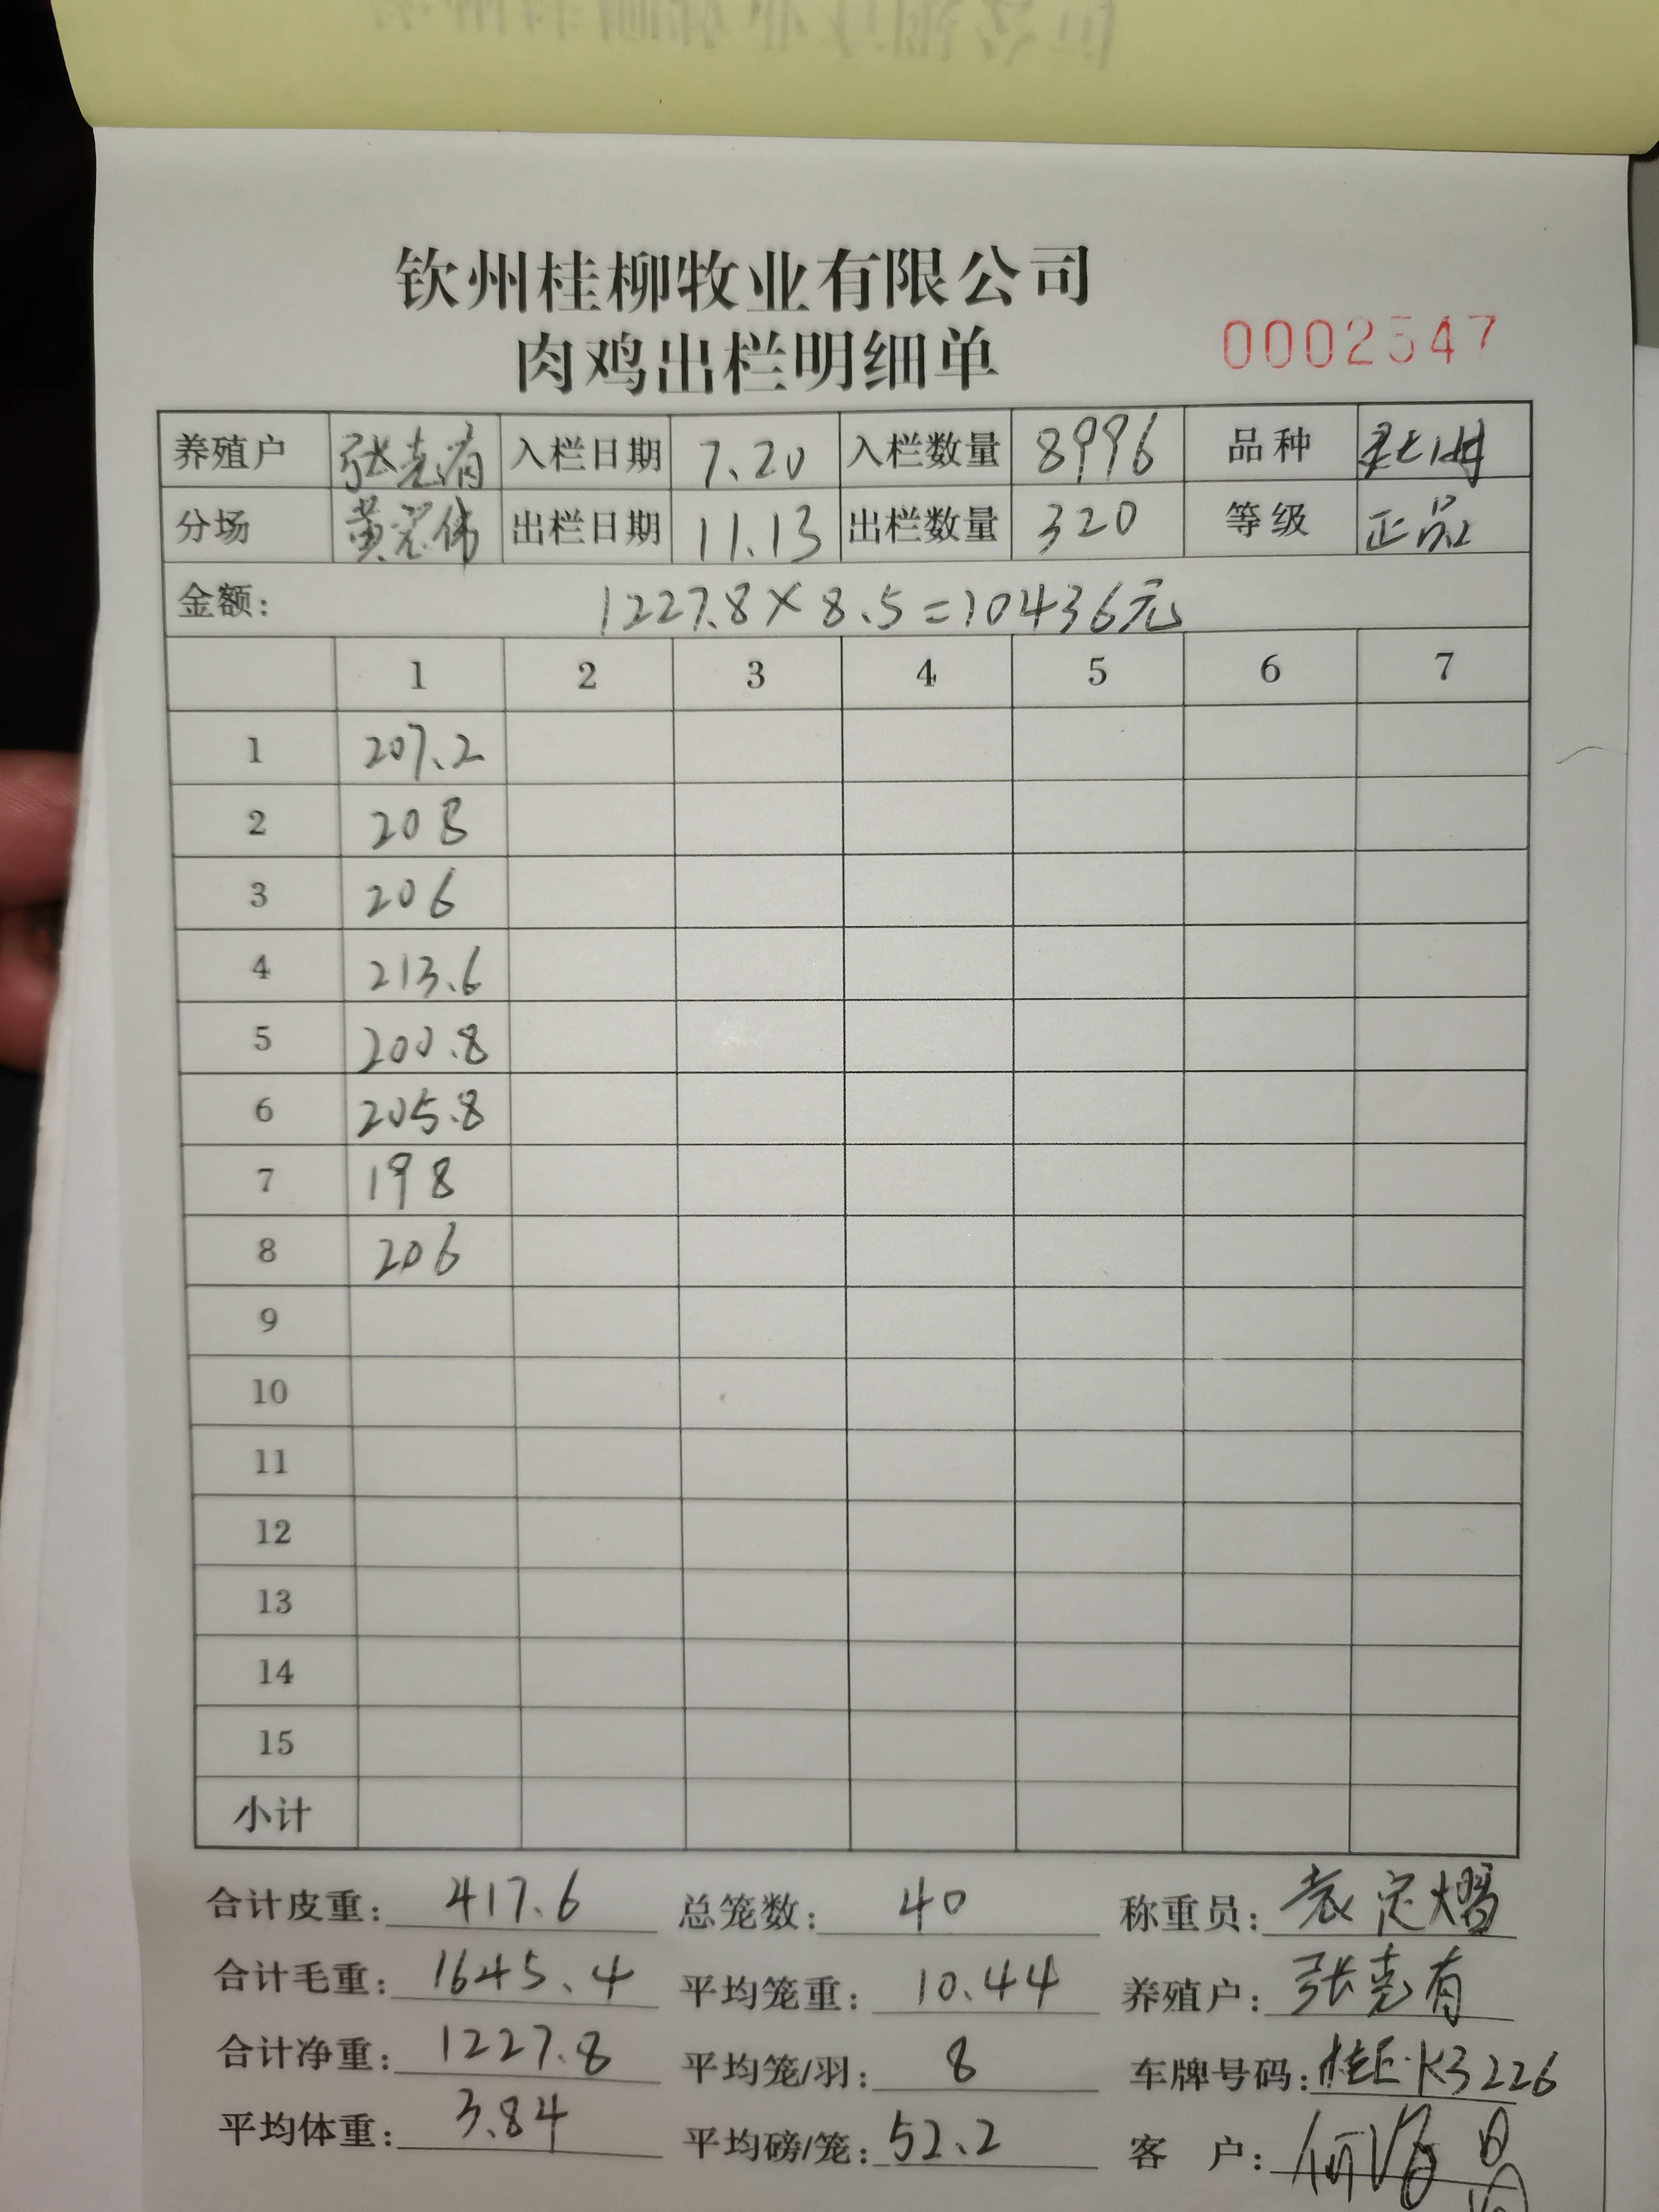 钦州桂柳牧业有限公司
肉鸡出栏明细单 0002547
养殖户 张克有 入栏日期 7.20 入栏数量 8996 品种
分场 黄 伟 出栏日期 11.13 出栏数量 320 等级 正品
金额: 1227.8×8.5=10436元
1 2 3 4 5 6 7
1 207.2
2 208
3 206
4 213.6
5 200.8
6 205.8
7 198
8 206
9
10
11
12
13
14
15
小计
合计皮重: 417.6 总笼数: 40 称重员: 袁定熠
合计毛重: 1645.4 平均笼重: 10.44 养殖户: 张克有
合计净重: 1227.8 平均笼/羽: 8 车牌号码: 桂E·K3226
平均体重: 3.84 平均磅/笼: 52.2 客 户: 何